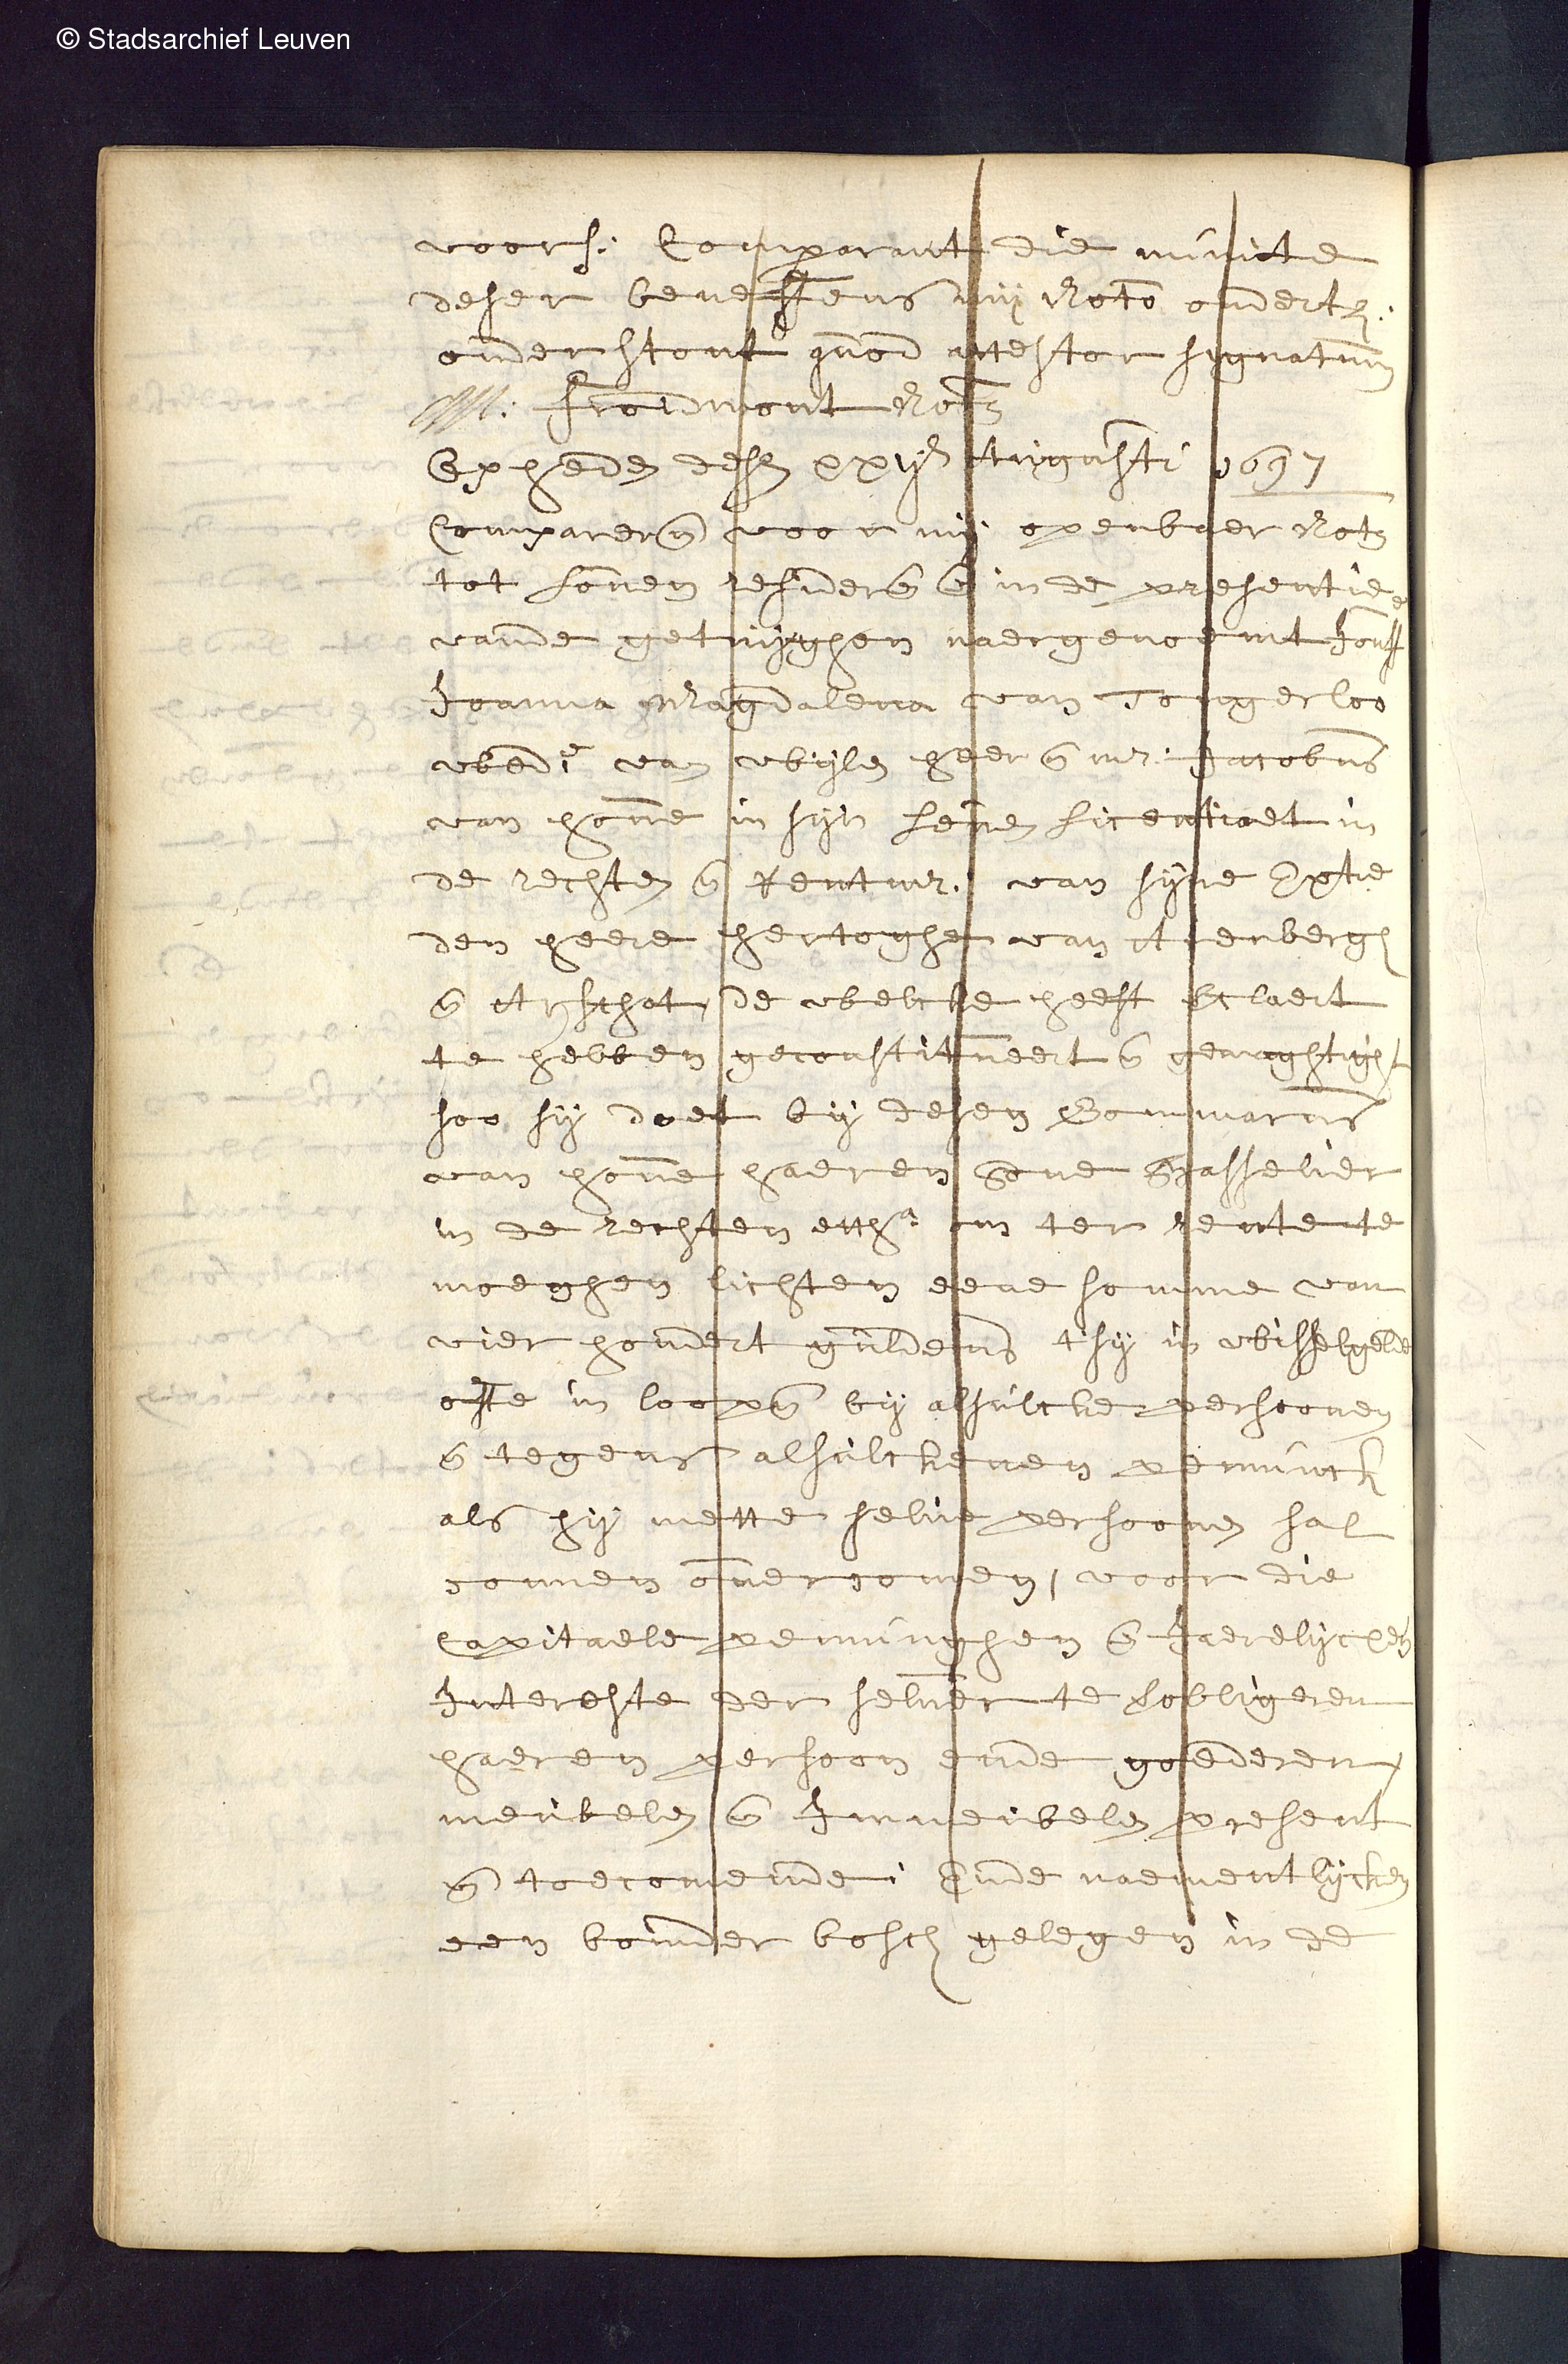 © Stadsarchief Leuven
voors: Comparant die minute
deser beneffens mij Noto ondertz.
onderstont quod attestor signatum
M: Froidmont Nots
Op heden desen xxijen Augusti 1697
Comparerende voor mij openbaer Nots
tot Loven residerende ende in de presentie
vande getuijghen naergenoemt Jouffe
Joanna Magdalena van Tongerloo
wedue van wijlen heer ende mr: Jacobus
van hove in sijn leven licentiaet in
de rechten ende Rentmr: van sijne Extie
den heere hertoghe van Arenbergh
ende Arschot, de welcke heeft verclaert
te hebben geconstitueert ende gemaghtight
soo sij doet bij desen
van hove haeren sone
in de rechten ettha om ter rente te
moeghen lichten eene somme van
vier hondert guldens t'sij in wisselgelde
ofte in loopende bij alsulcke persoonen
ende tegens alsulckenen penninck
als hij mette selve persoonen sal
connen overcomen, voor die
Capitaele penninghen ende Jaerelijcxen
Intereste der selver te obligeren
haeren persoon ende goederen,
meubelen ende Immeubelen present
ende toecomende: Ende naementlijcken
een bounder bosch gelegen in de